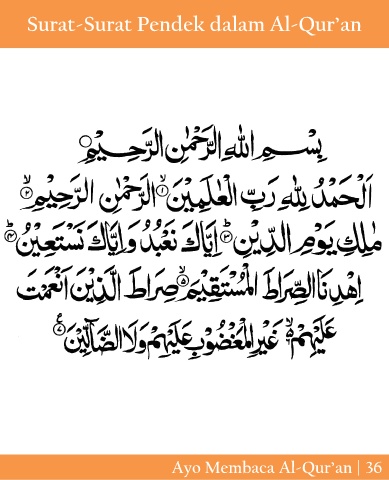 Surat-Surat Pendek dalam Al-Qur’an
بِسْمِ اللهِ الرَّحْمٰنِ الرَّحِيْمِ
اَلْحَمْدُ لِلّٰهِ رَبِّ الْعٰلَمِيْنَ ۙ﴿١﴾ الرَّحْمٰنِ الرَّحِيْمِ ۙ﴿٢﴾
مٰلِكِ يَوْمِ الدِّيْنِ ۗ﴿٣﴾ اِيَّاكَ نَعْبُدُ وَاِيَّاكَ نَسْتَعِيْنُ ۗ﴿٤﴾
اِهْدِنَا الصِّرَاطَ الْمُسْتَقِيْمَ ۙ﴿٥﴾ صِرَاطَ الَّذِيْنَ اَنْعَمْتَ
عَلَيْهِمْ ۙ﴿٦﴾ غَيْرِ الْمَغْضُوْبِ عَلَيْهِمْ وَلَا الضَّاۤلِّيْنَ ࣖ﴿٧﴾
Ayo Membaca Al-Qur’an | 36